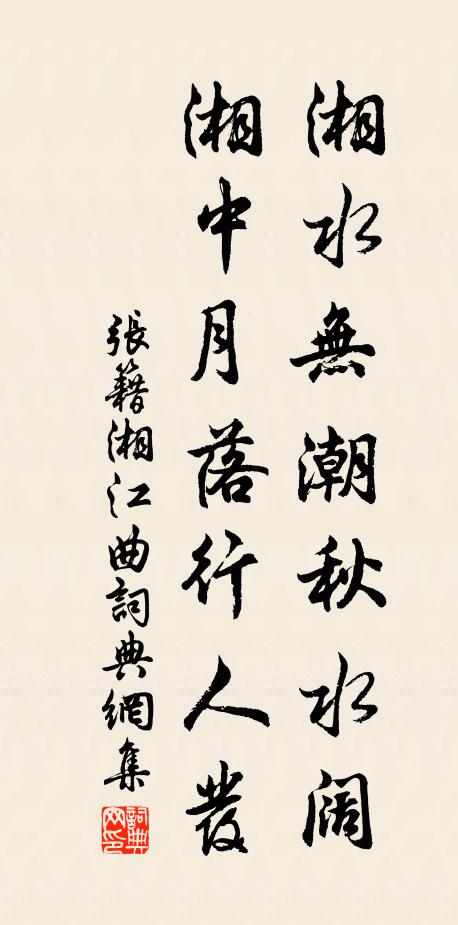 湘水無潮秋水闊
湘中月落行人發
張籍湘江曲詞典網集
詞典網印